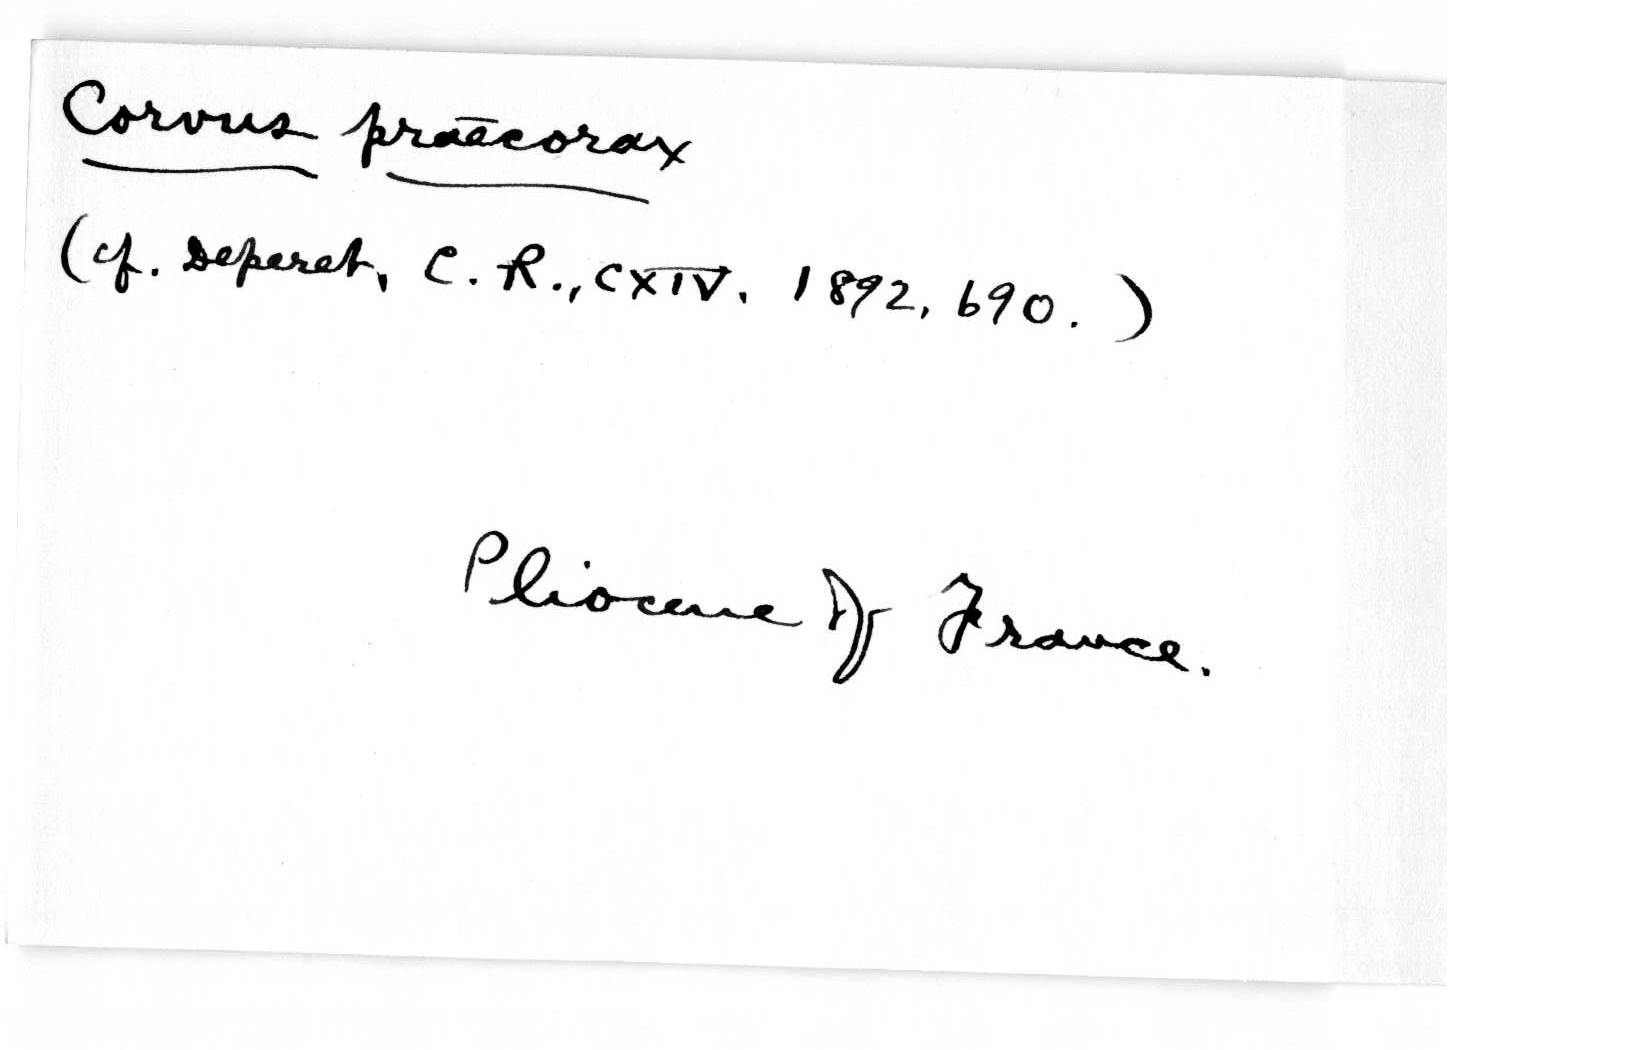 Corvus praecorax
(cf. Deperet, C. R., CXIV. 1892, 690.)
Pliocene of France.